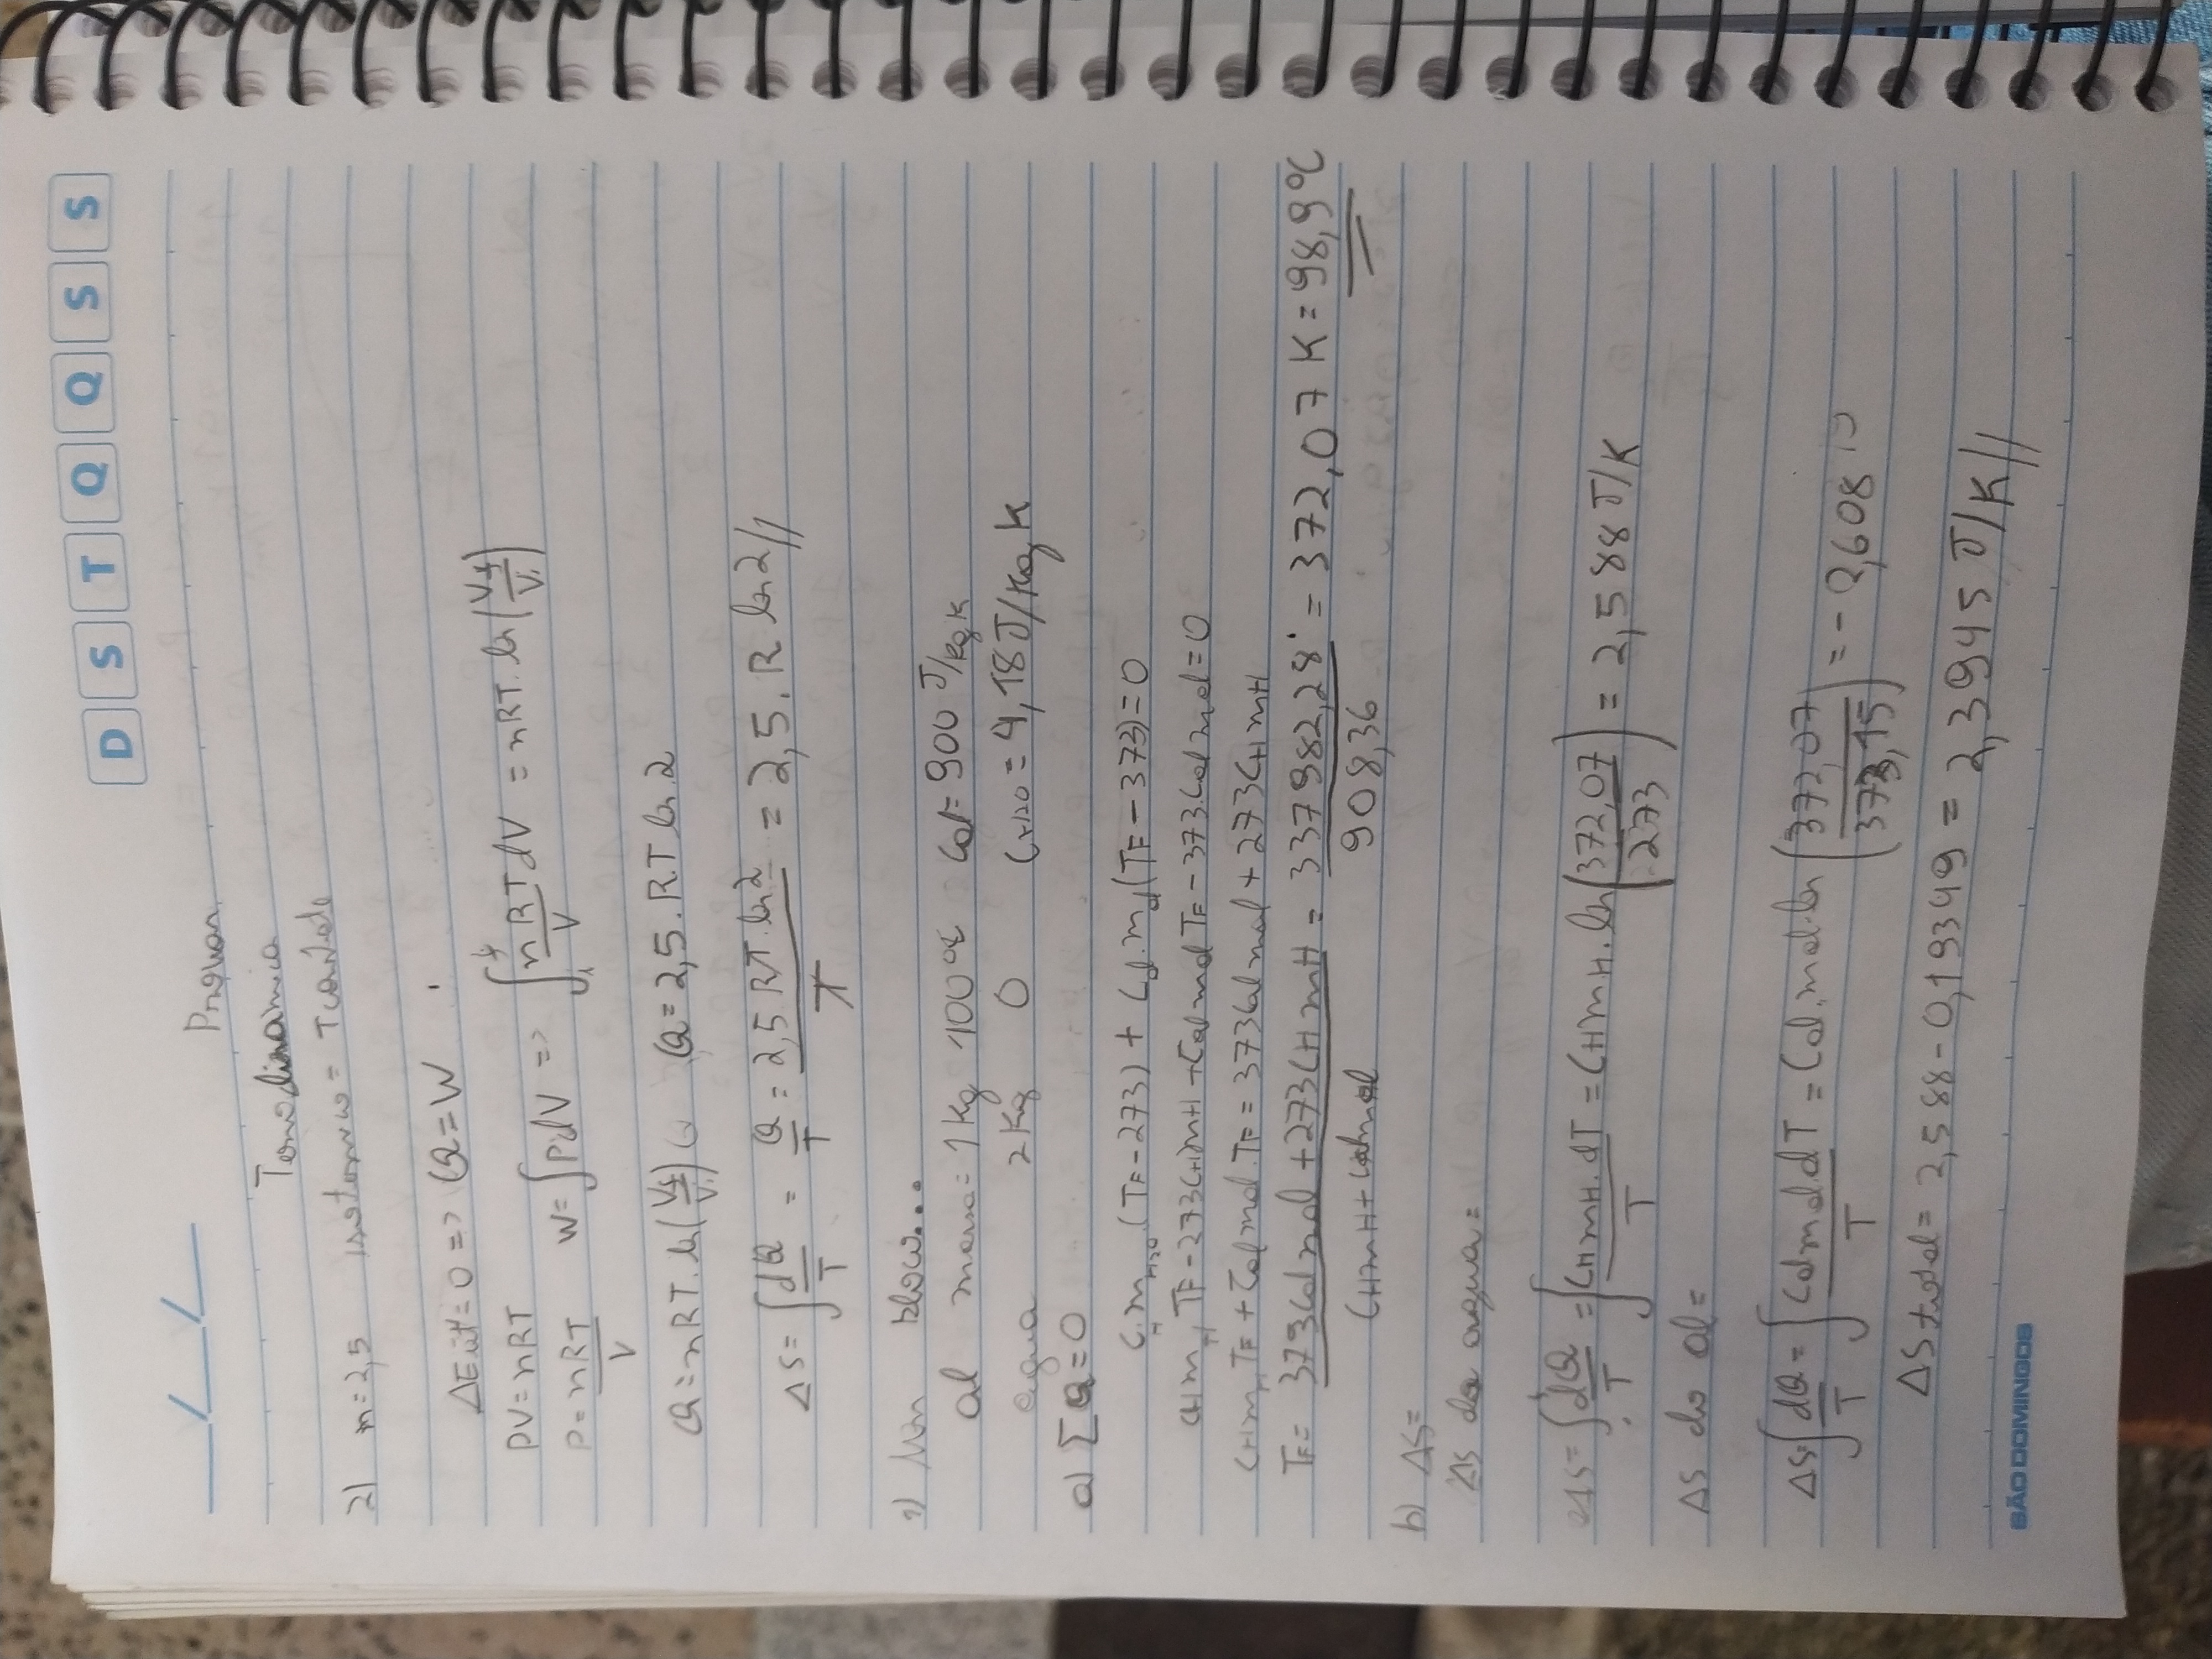 __/__/__ D S T Q Q S S
Provas
Termodinamica
2) n=2,5 isotermico = T constante
ΔEint=0 => Q=W
PV=nRT
P=nRT/V W=∫PdV => ∫nRT/V dV = nRT.ln(Vf/Vi)
Q=nRT.ln(Vf/Vi) Q=2,5.RT ln2
ΔS=∫dQ/T = Q/T = 2,5.RT.ln2/T = 2,5.R ln2//
1)
al massa=1kg 100°C Cal=900 J/kg K
agua 2kg 0 CH2O=4,18J/kg K
a) ΣQ=0
C.mH2O.(TF-273)+Cal.mal(TF-373)=0
CHmH TF-273CHmH+CalmalTF-373Calmal=0
CHmH TF+Calmal.TF=373Calmal+273CHmH
TF= 373Calmal+273CHmH/CHmH+Calmal = 337982,28/908,36 = 372,07K=98,9°C
b) ΔS=
ΔS da agua=
ΔS=∫dQ/T=∫CHmH.dT/T=CHmH.ln(372,07/273)=2,588J/K
ΔS do al=
ΔS=∫dQ/T=∫Calmal.dT/T=Cal.mal.ln(372,07/373,15)=-2,608
ΔStotal=2,588-0,19349=2,3945J/K//
SÃO DOMINGOS